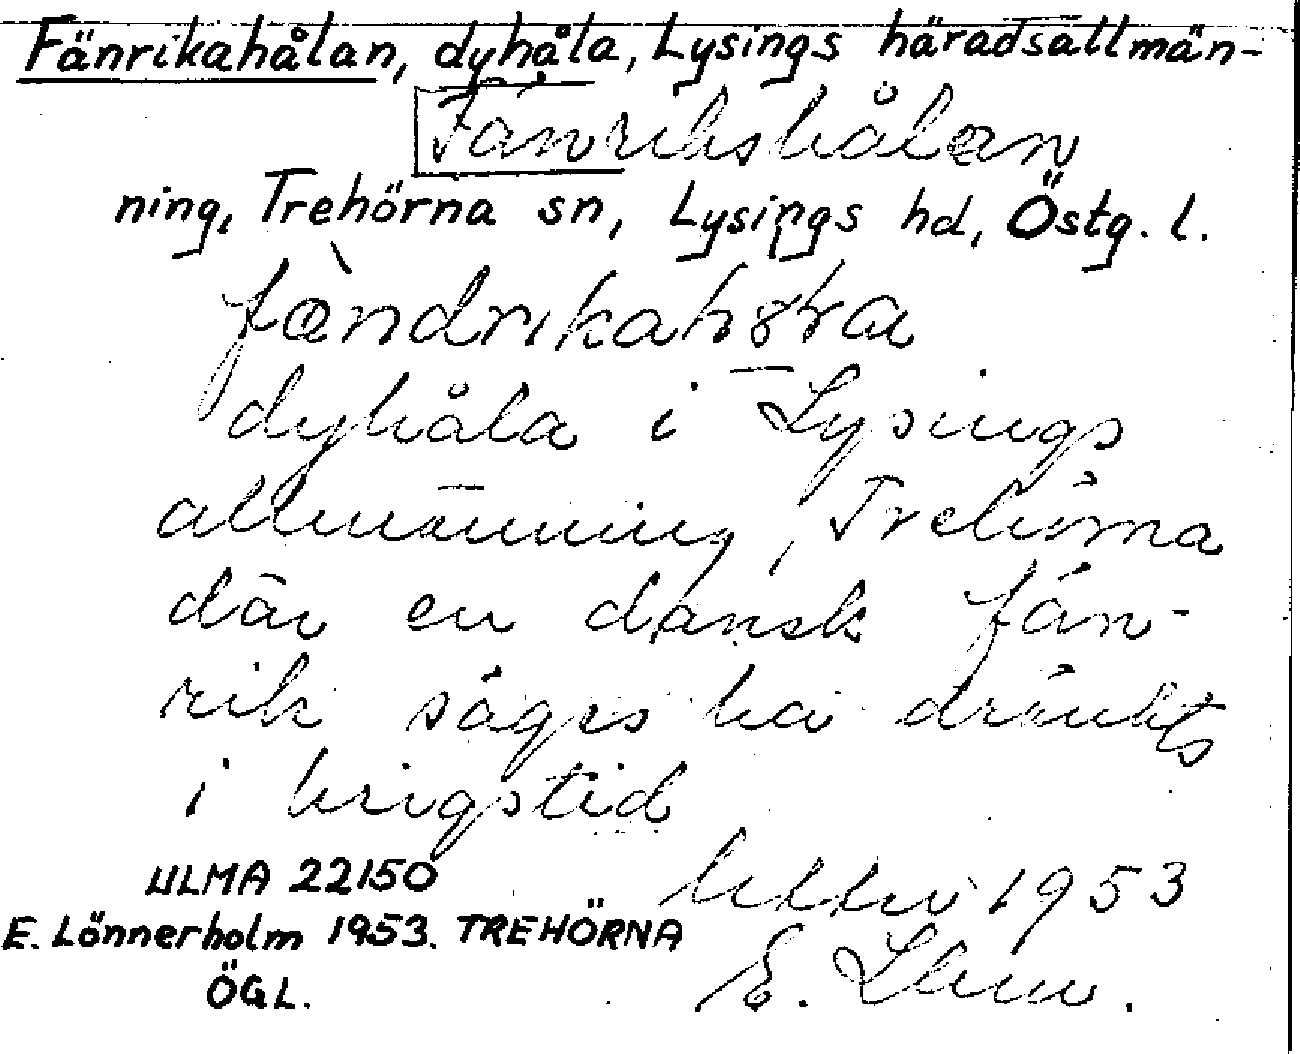 Fänrikahålan, dyhåla, Lysings häradsallmän-
Fänrikshålan
ning, Trehörna sn, Lysings hd, Östg. l.
fændrikahϑɫa
dyhåla i Lysings
allmänning, Trehörna
där en dansk fän-
rik säges ha dränkts
i krigstid
ULMA 22150
1953
E. Lönnerholm 1953. TREHÖRNA
E. Lhm.
ÖGL.